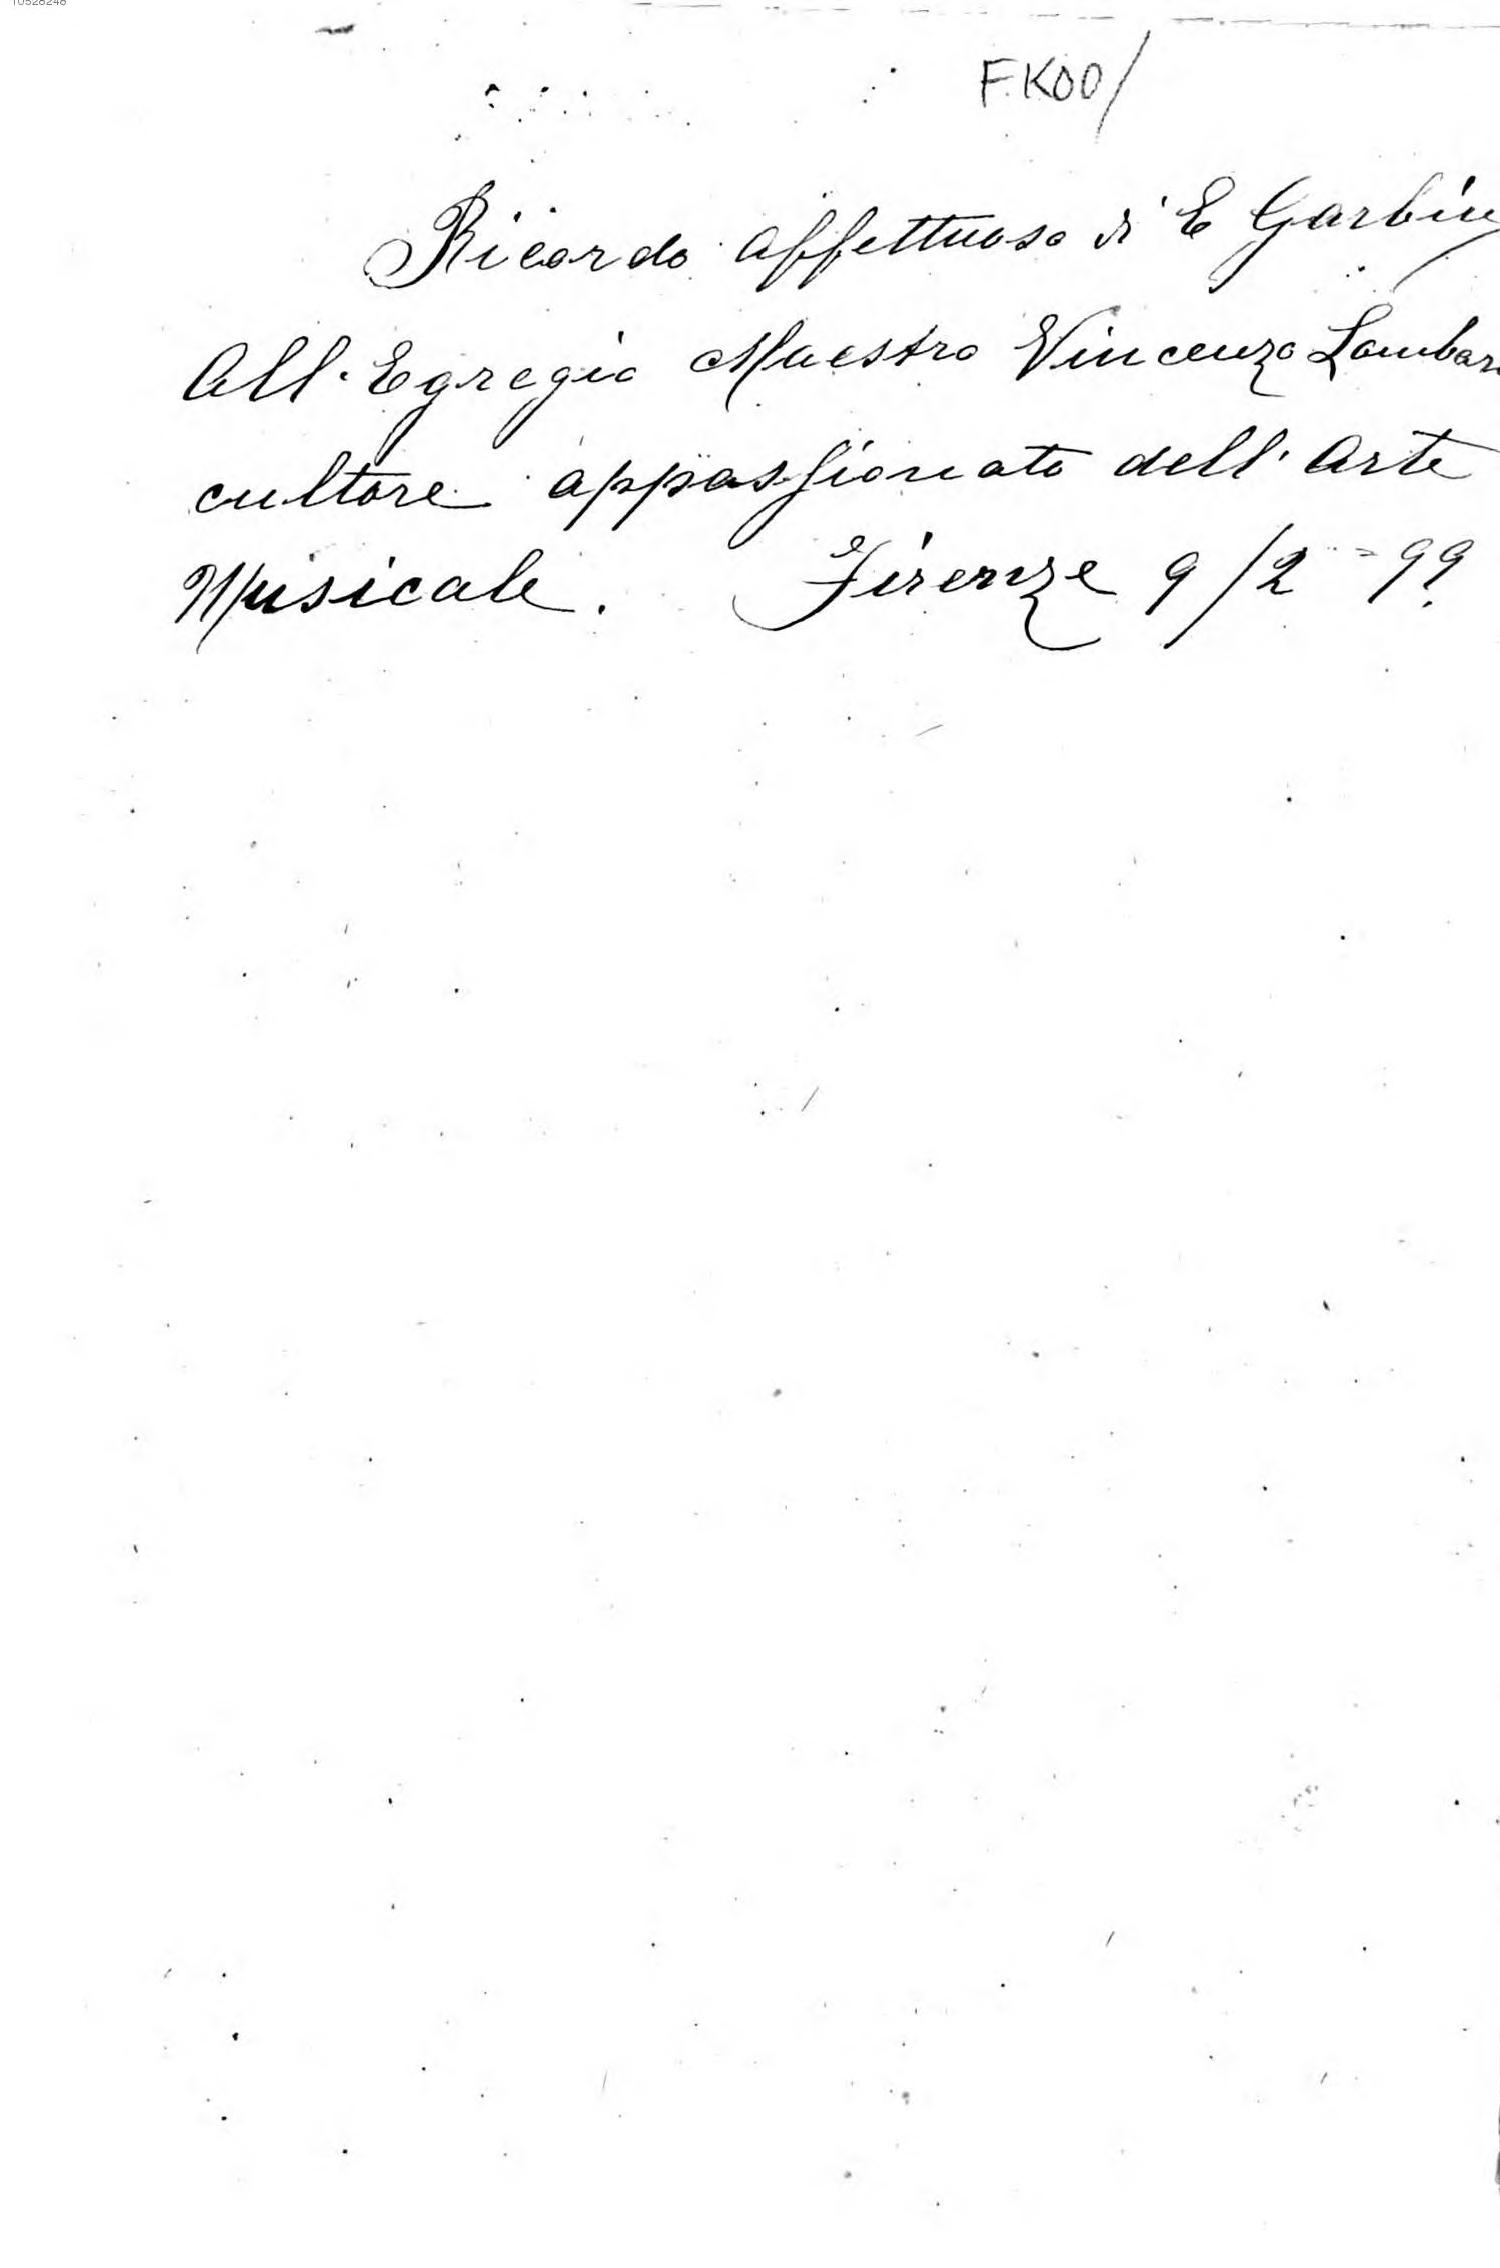 10528248
F.K00/
Ricordo affettuoso di E Garbin
All'Egregio Maestro Vincenzo Lombar
cultore appassionato dell'Arte
Musicale. Firenze 9/2=99.